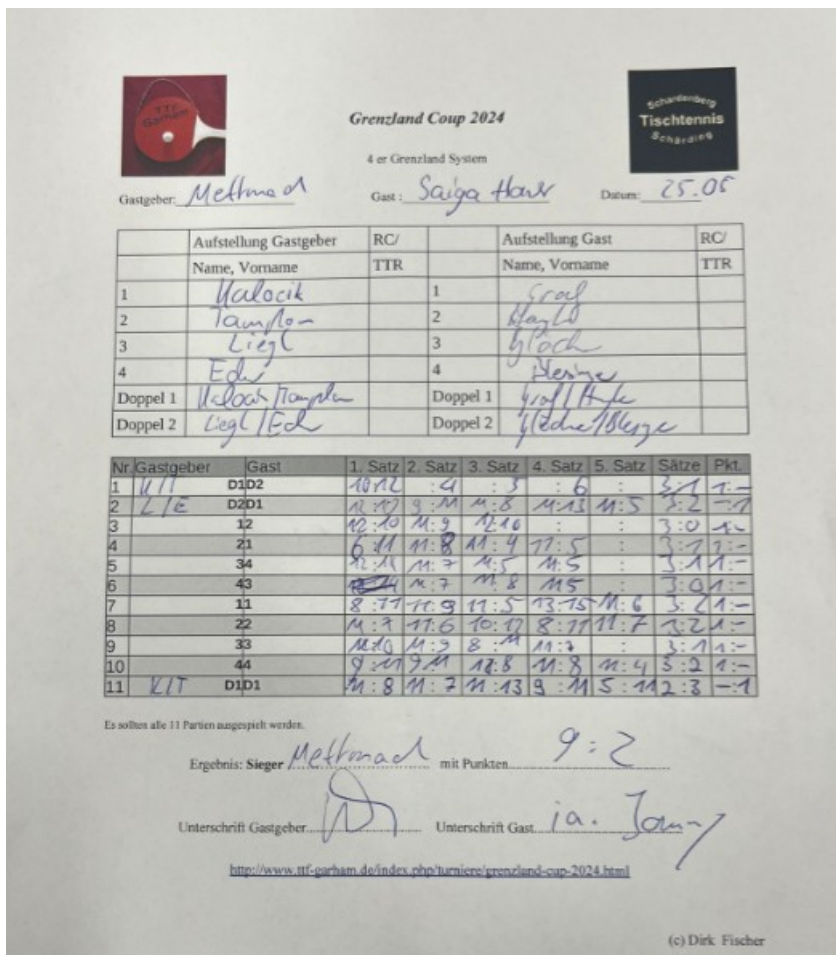 TTF
Garham
Schardenberg
Tischtennis
Schärding
Grenzland Coup 2024
4 er Grenzland System
Gastgeber: Mettmach Gast: Saiga Hans Datum: 25.05
Aufstellung Gastgeber RC/ Aufstellung Gast RC/
Name, Vorname TTR Name, Vorname TTR
1 1 Graf
2 2
3 Liegl 3
4 4
Doppel 1 Doppel 1 Graf /
Doppel 2 Liegl / Doppel 2
Nr. Gastgeber Gast 1. Satz 2. Satz 3. Satz 4. Satz 5. Satz Sätze Pkt.
1 K/T D1D2 10 12 : 4 : 5 : 6 : 3:1 1:-
2 L/E D2D1 9 : 11 11:8 11:13 11:5 3:2 -:1
3 12 12:10 11:9 12:10 : : 3:0 1:-
4 21 6:11 11:8 11:4 11:5 : 3:1 1:-
5 34 11:7 11:5 11:5 : 3:1 1:-
6 43 11:7 11:8 11 5 : 3:0 1:-
7 11 8:11 11:9 11:5 13:15 11:6 3:2 1:-
8 22 11:7 11:6 10:12 8:11 11:7 3:2 1:-
9 33 12:10 11:9 8:11 11:7 : 3:1 1:-
10 44 9:11 9 11 12:8 11:8 11:4 3:2 1:-
11 K/T D1D1 11:8 11:7 11:13 9:11 5:11 2:3 -:1
Es sollten alle 11 Partien ausgespielt werden.
Ergebnis: Sieger Mettmach mit Punkten 9:2
Unterschrift Gastgeber Unterschrift Gast i.a.
http://www.ttf-garham.de/index.php/turniere/grenzland-cup-2024.html
(c) Dirk Fischer